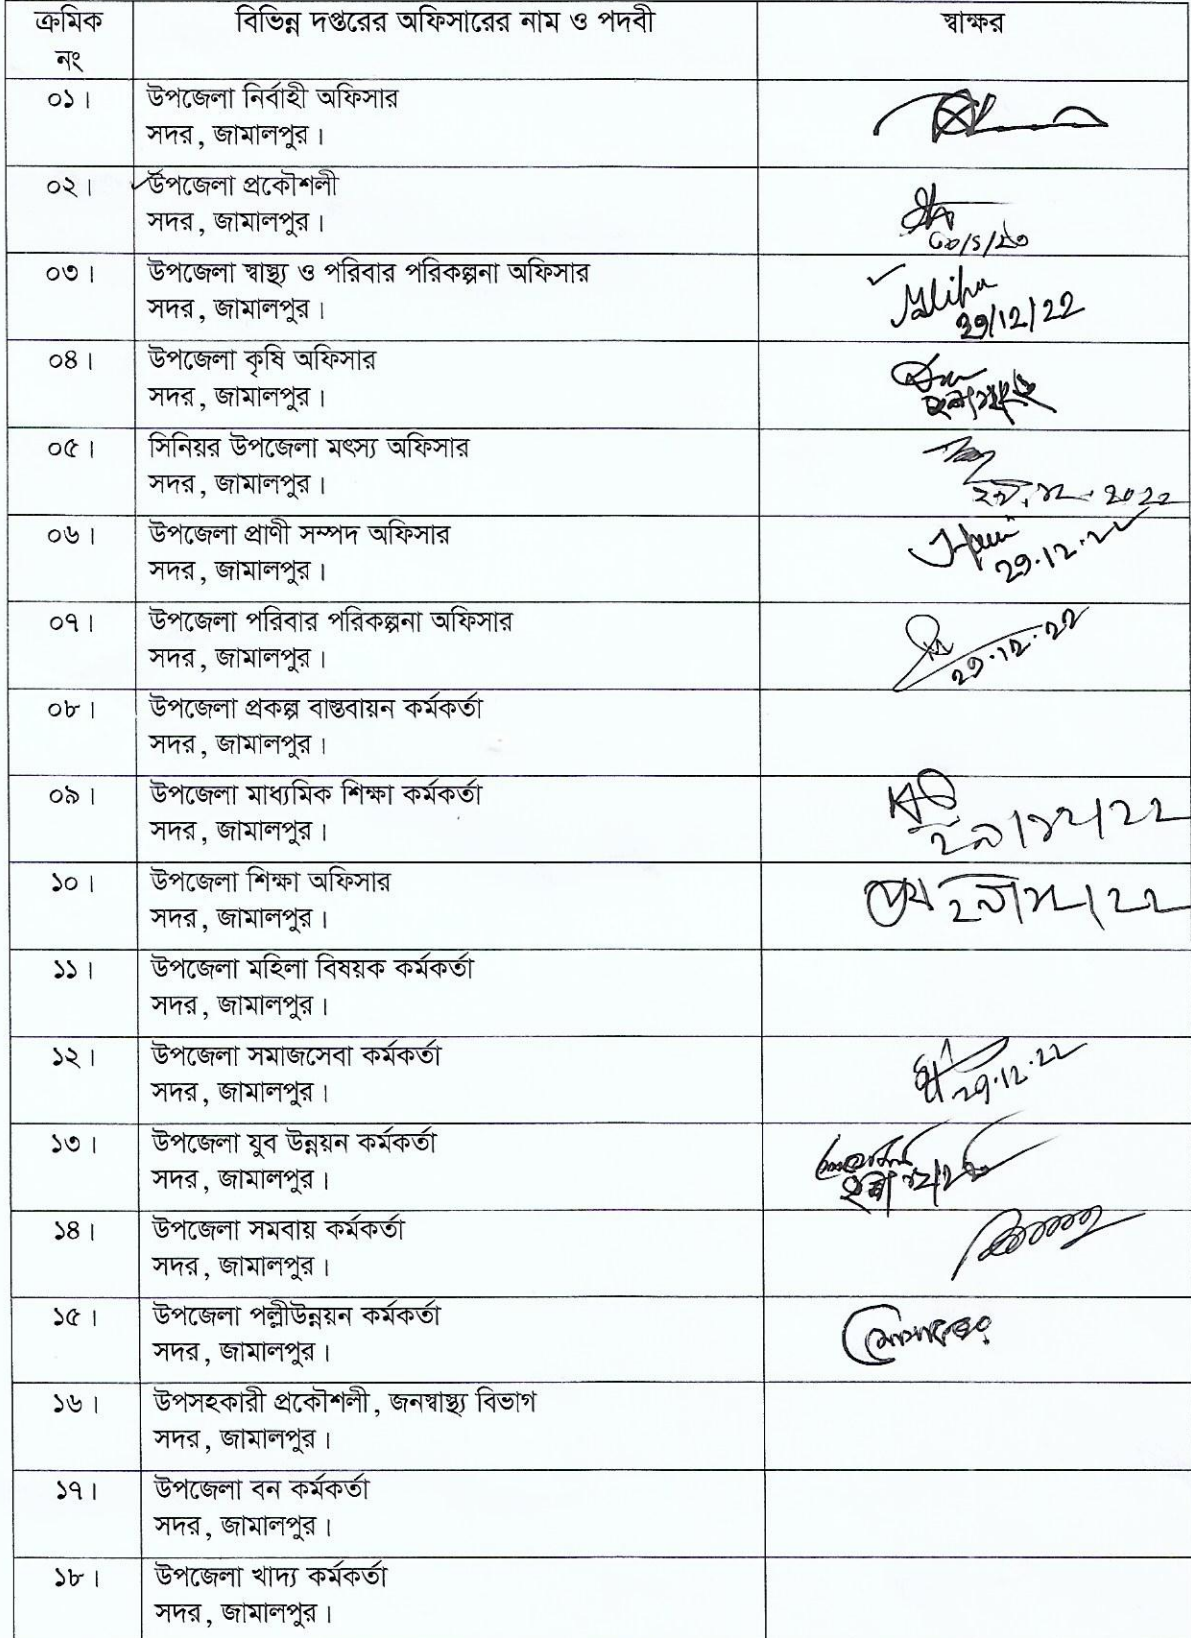 ক্রমিক নং বিভিন্ন দপ্তরের অফিসারের নাম ও পদবী স্বাক্ষর
০১। উপজেলা নির্বাহী অফিসার
সদর, জামালপুর।
০২। উপজেলা প্রকৌশলী
সদর, জামালপুর।
০৩। উপজেলা স্বাস্থ্য ও পরিবার পরিকল্পনা অফিসার
সদর, জামালপুর।
29/12/22
০৪। উপজেলা কৃষি অফিসার
সদর, জামালপুর।
০৫। সিনিয়র উপজেলা মৎস্য অফিসার
সদর, জামালপুর।
২৯.১২.২০২২
০৬। উপজেলা প্রাণী সম্পদ অফিসার
সদর, জামালপুর।
29.12.22
০৭। উপজেলা পরিবার পরিকল্পনা অফিসার
সদর, জামালপুর।
29.12.22
০৮। উপজেলা প্রকল্প বাস্তবায়ন কর্মকর্তা
সদর, জামালপুর।
০৯। উপজেলা মাধ্যমিক শিক্ষা কর্মকর্তা
সদর, জামালপুর।
২৯/১২/২২
১০। উপজেলা শিক্ষা অফিসার
সদর, জামালপুর।
২৯/১২/২২
১১। উপজেলা মহিলা বিষয়ক কর্মকর্তা
সদর, জামালপুর।
১২। উপজেলা সমাজসেবা কর্মকর্তা
সদর, জামালপুর।
29.12.22
১৩। উপজেলা যুব উন্নয়ন কর্মকর্তা
সদর, জামালপুর।
১৪। উপজেলা সমবায় কর্মকর্তা
সদর, জামালপুর।
১৫। উপজেলা পল্লীউন্নয়ন কর্মকর্তা
সদর, জামালপুর।
১৬। উপসহকারী প্রকৌশলী, জনস্বাস্থ্য বিভাগ
সদর, জামালপুর।
১৭। উপজেলা বন কর্মকর্তা
সদর, জামালপুর।
১৮। উপজেলা খাদ্য কর্মকর্তা
সদর, জামালপুর।